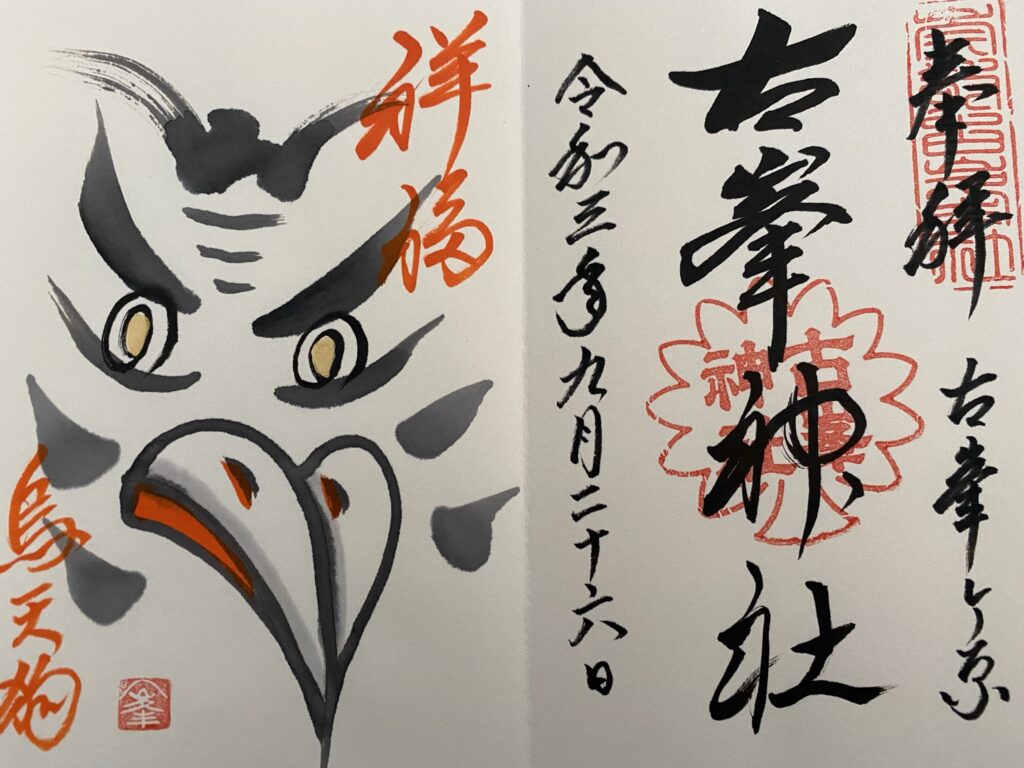 奉拝
古峯ヶ原
古峯神社
古峯
神社
令和三年九月二十六日
祥福
烏天狗
峯